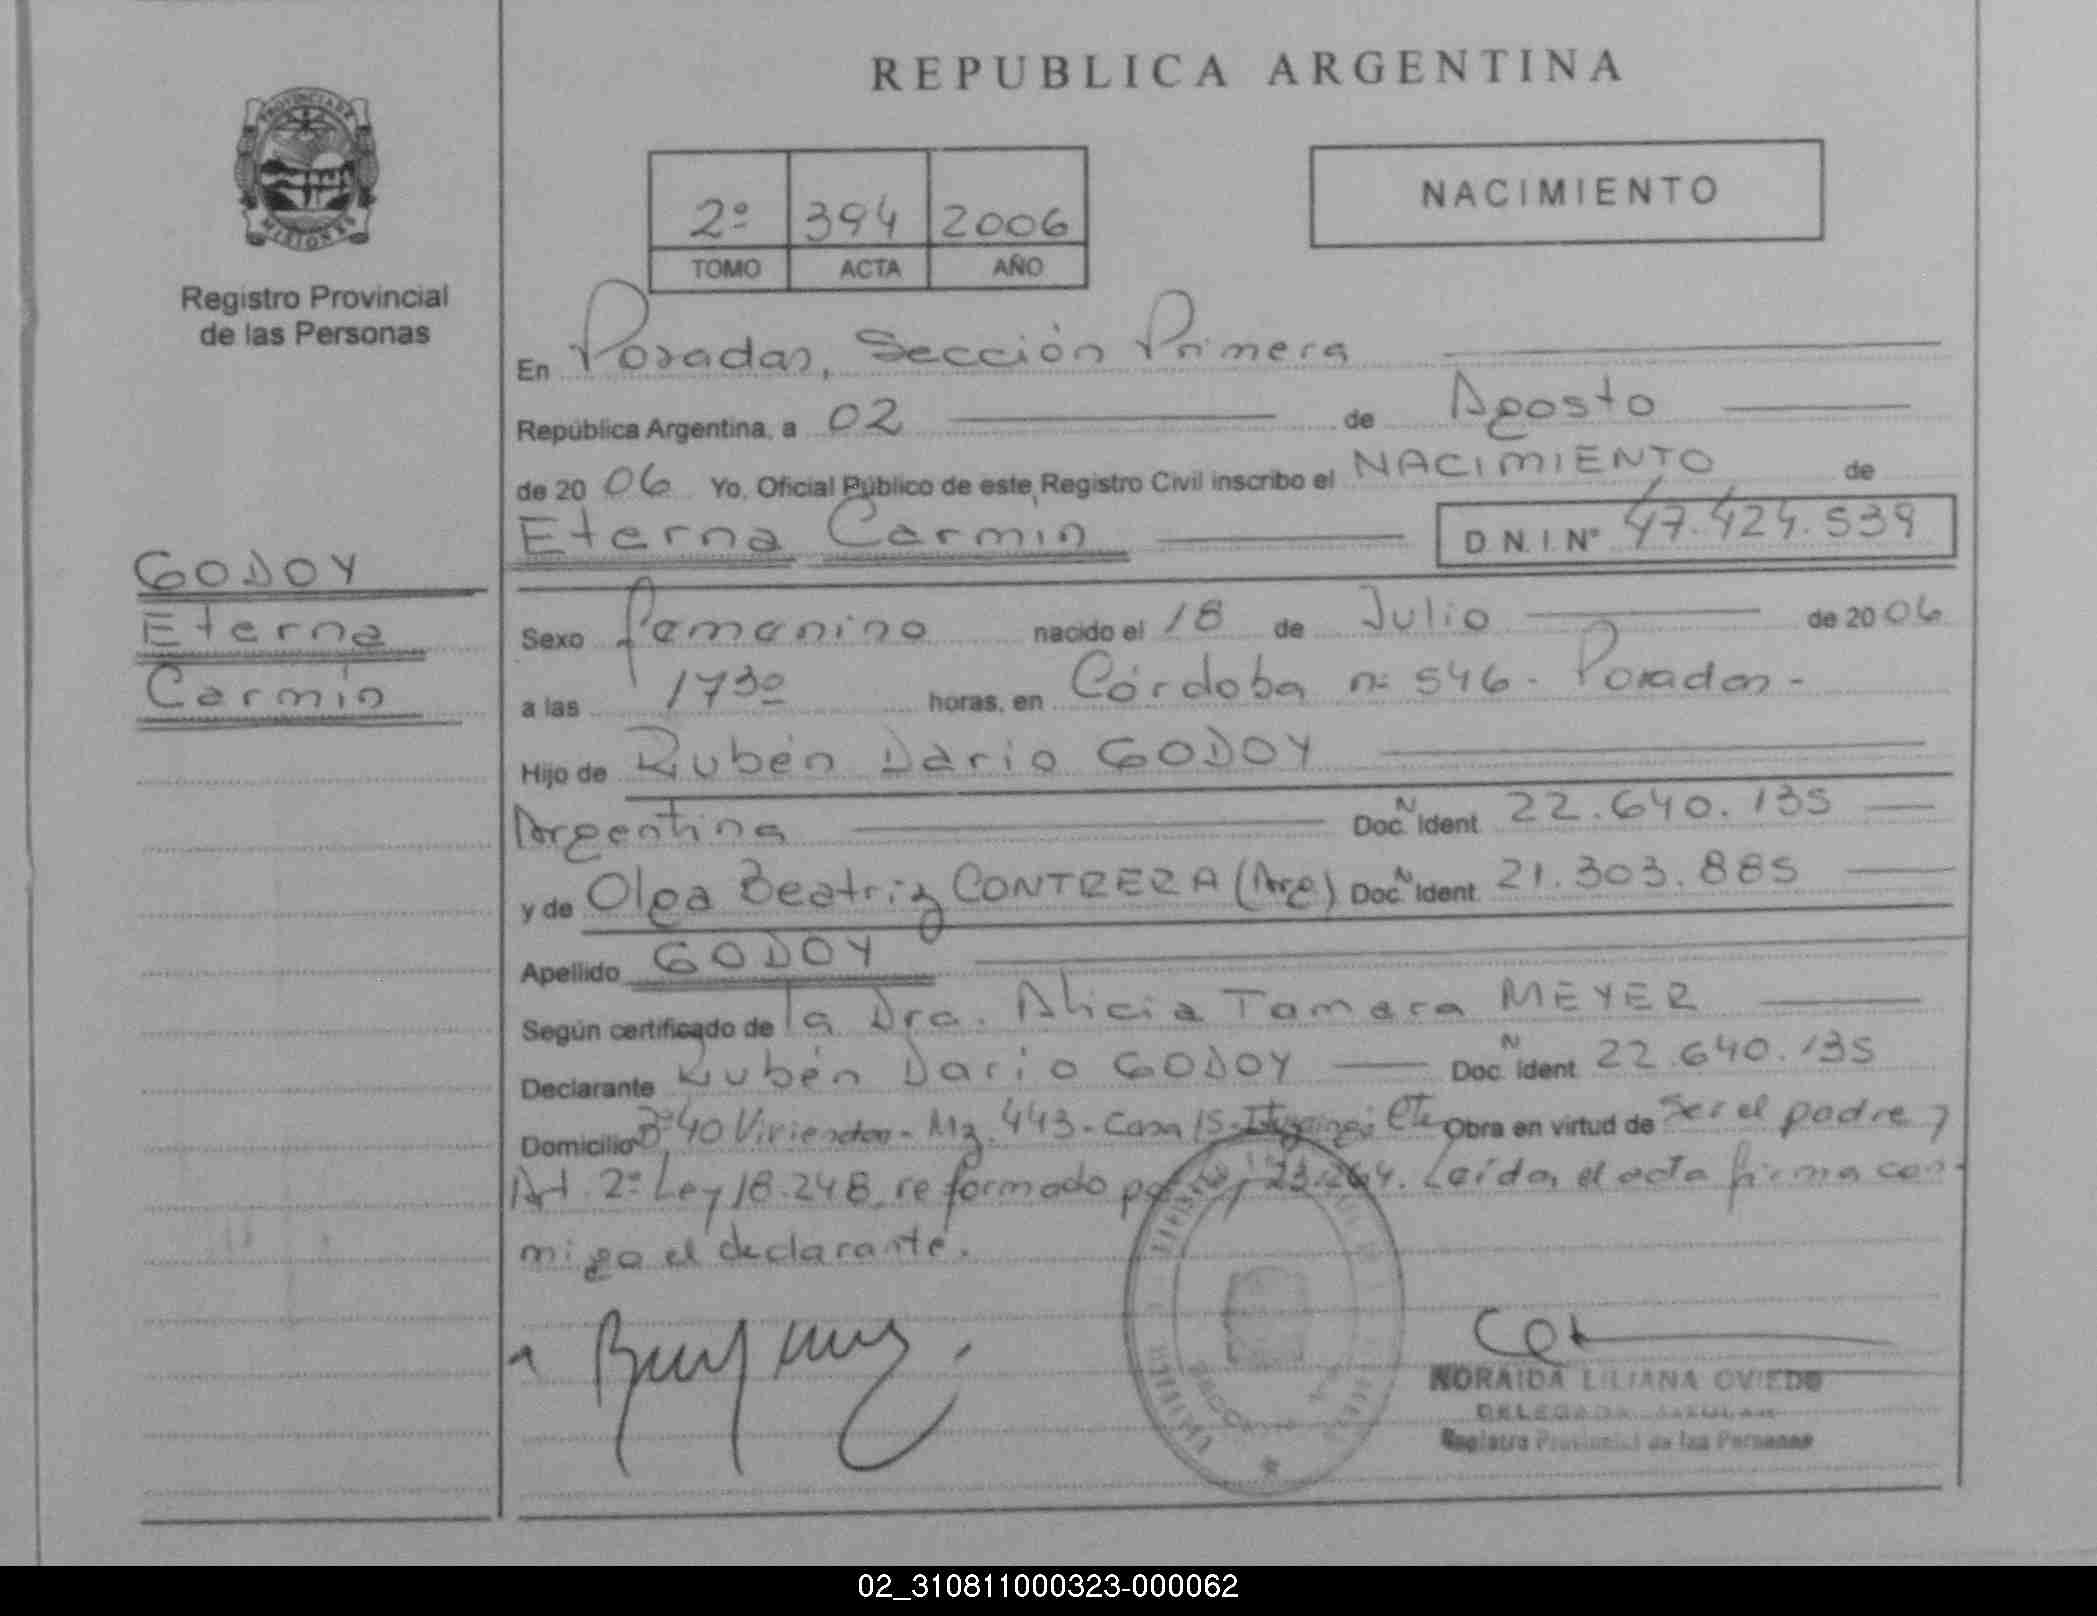 REPUBLICA ARGENTINA
PROVINCIA DE
MISIONES
Registro Provincial
de las Personas
2º 394 2006
TOMO ACTA AÑO
NACIMIENTO
En Posadas, Sección Primera
República Argentina, a 02 de Agosto
de 20 06 Yo, Oficial Público de este Registro Civil inscribo el NACIMIENTO de
Eterna Carmin D.N.I. Nº 47.424.539
GODOY
Eterna
Carmin
Sexo femenino nacido el 18 de Julio de 20 06
a las 17³⁰ horas, en Córdoba nº 546 - Posadas -
Hijo de Rubén Dario GODOY
Argentina Doc. N Ident. 22.640.135
y de Olga Beatriz CONTRERA (Arg) Doc. N Ident. 21.303.885
Apellido GODOY
Según certificado de la Dra. Alicia Tamara MEYER
Declarante Rubén Dario GODOY Doc. N Ident. 22.640.135
Domicilio Bº 40 Viviendas - Mz. 443 - Casa 15 - Obra en virtud de ser el padre y
Art. 2º Ley 18.248, reformado por 23.264. Leída el acta firma con-
migo el declarante.
NORAIDA LILIANA OVIEDO
DELEGADA TITULAR
Registro Provincial de las Personas
02_310811000323-000062